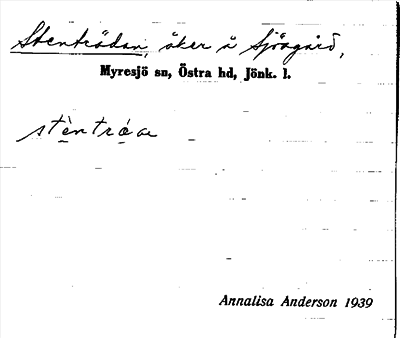 Stenträdan, åker å Sjöagård,
Myresjö sn, Östra hd, Jönk. l.
stèntráa
Annalisa Anderson 1939